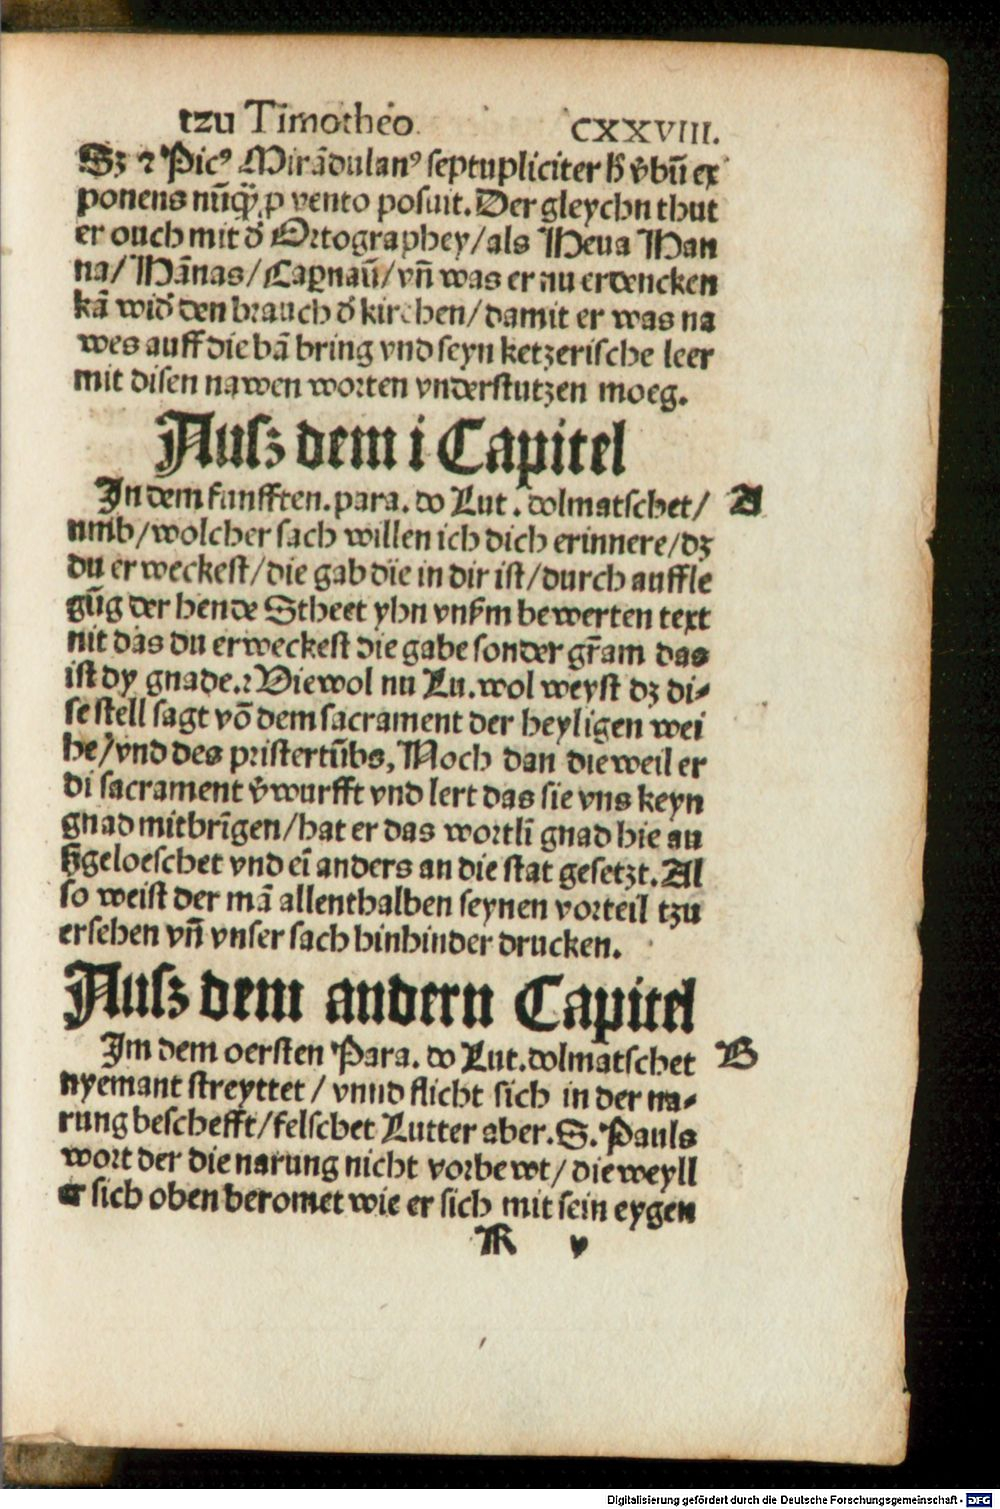 tzu Timotheo CXXVIII.
Sꝫ ⁊ Picꝰ Mirãdulanꝰ septupliciter vbũ ex
ponens nũq̃ p vento posuit. Der gleychn thut
er ouch mit d̉ Ortographey/als Heva Man
na/ Mãnas/ Capnaũ/ vñ was er nu erdencken
kã wid̉ den brauch d̉ kirchen/ damit er was na
wes auff die bã bring vnd seyn ketzerische leer
mit disen nawen worten vnderstutzen moeg.
Ausz dem i Capitel
In dem funfften. para. do Lut. dolmatschet/ A
vmb/wolcher sach willen ich dich erinnere/dꝫ
du erweckest/die gab die in dir ist/durch auffle
gũg der hende Stheet yhn vnßm bewerten text
nit das du erweckest die gabe sonder gr̃am das
ist dy gnade.⁊ Viewol nu Lu. wol weyst dꝫ di⸗
se stell sagt võ dem sacrament der heyligen wei
he/vnd des pristertũbs, Noch dan die weil er
di sacrament v̉wurfft vnd lert das sie vns keyn
gnad mitbrĩgen/hat er das wortlĩ gnad hie au
ßgeloeschet vnd eĩ anders an die stat gesetzt. Al
so weist der mã allenthalben seynen vorteil tzu
ersehen vñ vnser sach hinhinder drucken.
Ausz dem andern Capitel
Im dem oersten Para. do Lut. dolmatschet B
nyemant streyttet / vnnd flicht sich in der na⸗
rung beschefft/felschet Lutter aber. S. Pauls
wort der die narung nicht vorbewt/ die weyll
er sich oben beromet wie er sich mit sein eygen
R v
Digitalisierung gefördert durch die Deutsche Forschungsgemeinschaft - DFG